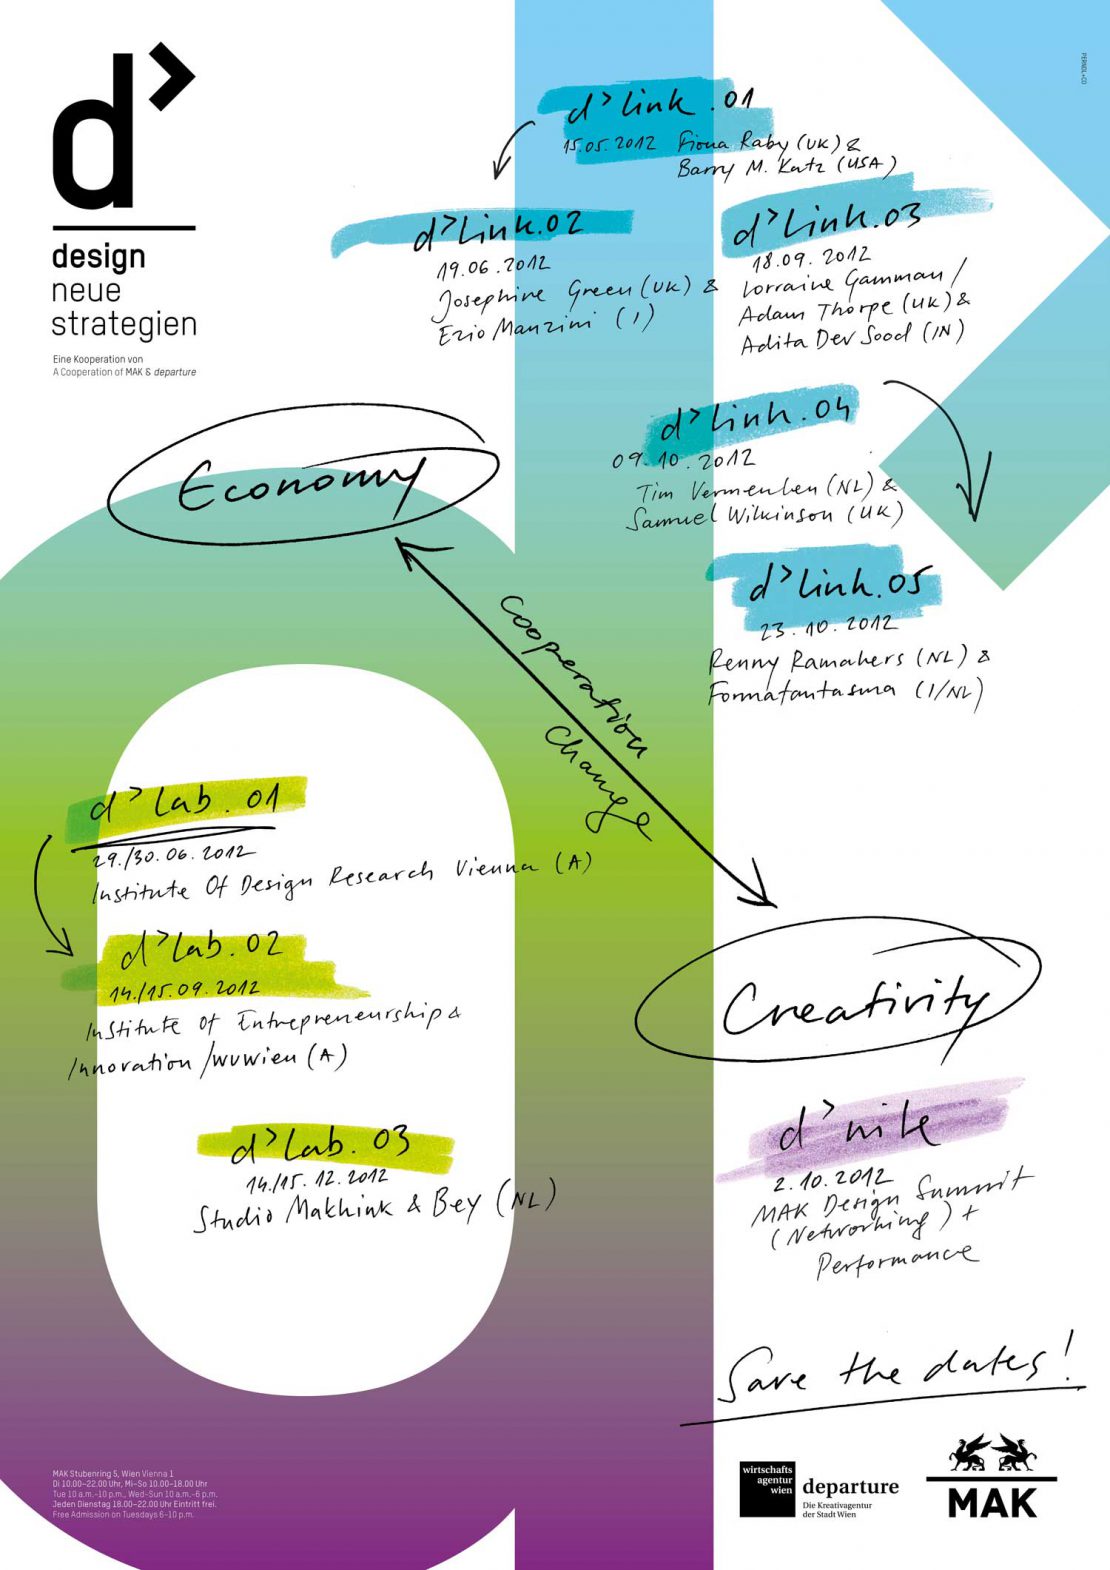 d>
design
neue
strategien
Eine Kooperation von
A Cooperation of MAK & departure
PERNDL+CO
d>link.01
15.05.2012 Fiona Raby (UK) &
Barry M. Katz (USA)
d>link.02
19.06.2012
Josephine Green (UK) &
Ezio Manzini (I)
d>link.03
18.09.2012
Lorraine Gamman /
Adam Thorpe (UK) &
Adita Dev Sood (IN)
d>link.04
09.10.2012
Tim Vermeulen (NL) &
Samuel Wilkinson (UK)
d>link.05
23.10.2012
Renny Ramakers (NL) &
Formafantasma (I/NL)
Economy
Cooperation
Change
Creativity
d>lab.01
29./30.06.2012
Institute Of Design Research Vienna (A)
d>lab.02
14./15.09.2012
Institute of Entrepreneurship &
Innovation /wuwien (A)
d>lab.03
14./15.12.2012
Studio Makkink & Bey (NL)
d>nite
2.10.2012
MAK Design Summit
(Networking) +
Performance
Save the dates!
MAK Stubenring 5, Wien Vienna 1
Di 10.00–22.00 Uhr, Mi–So 10.00–18.00 Uhr
Tue 10 a.m.–10 p.m., Wed–Sun 10 a.m.–6 p.m.
Jeden Dienstag 18.00–22.00 Uhr Eintritt frei.
Free Admission on Tuesdays 6–10 p.m.
wirtschafts
agentur
wien
departure
Die Kreativagentur
der Stadt Wien
MAK